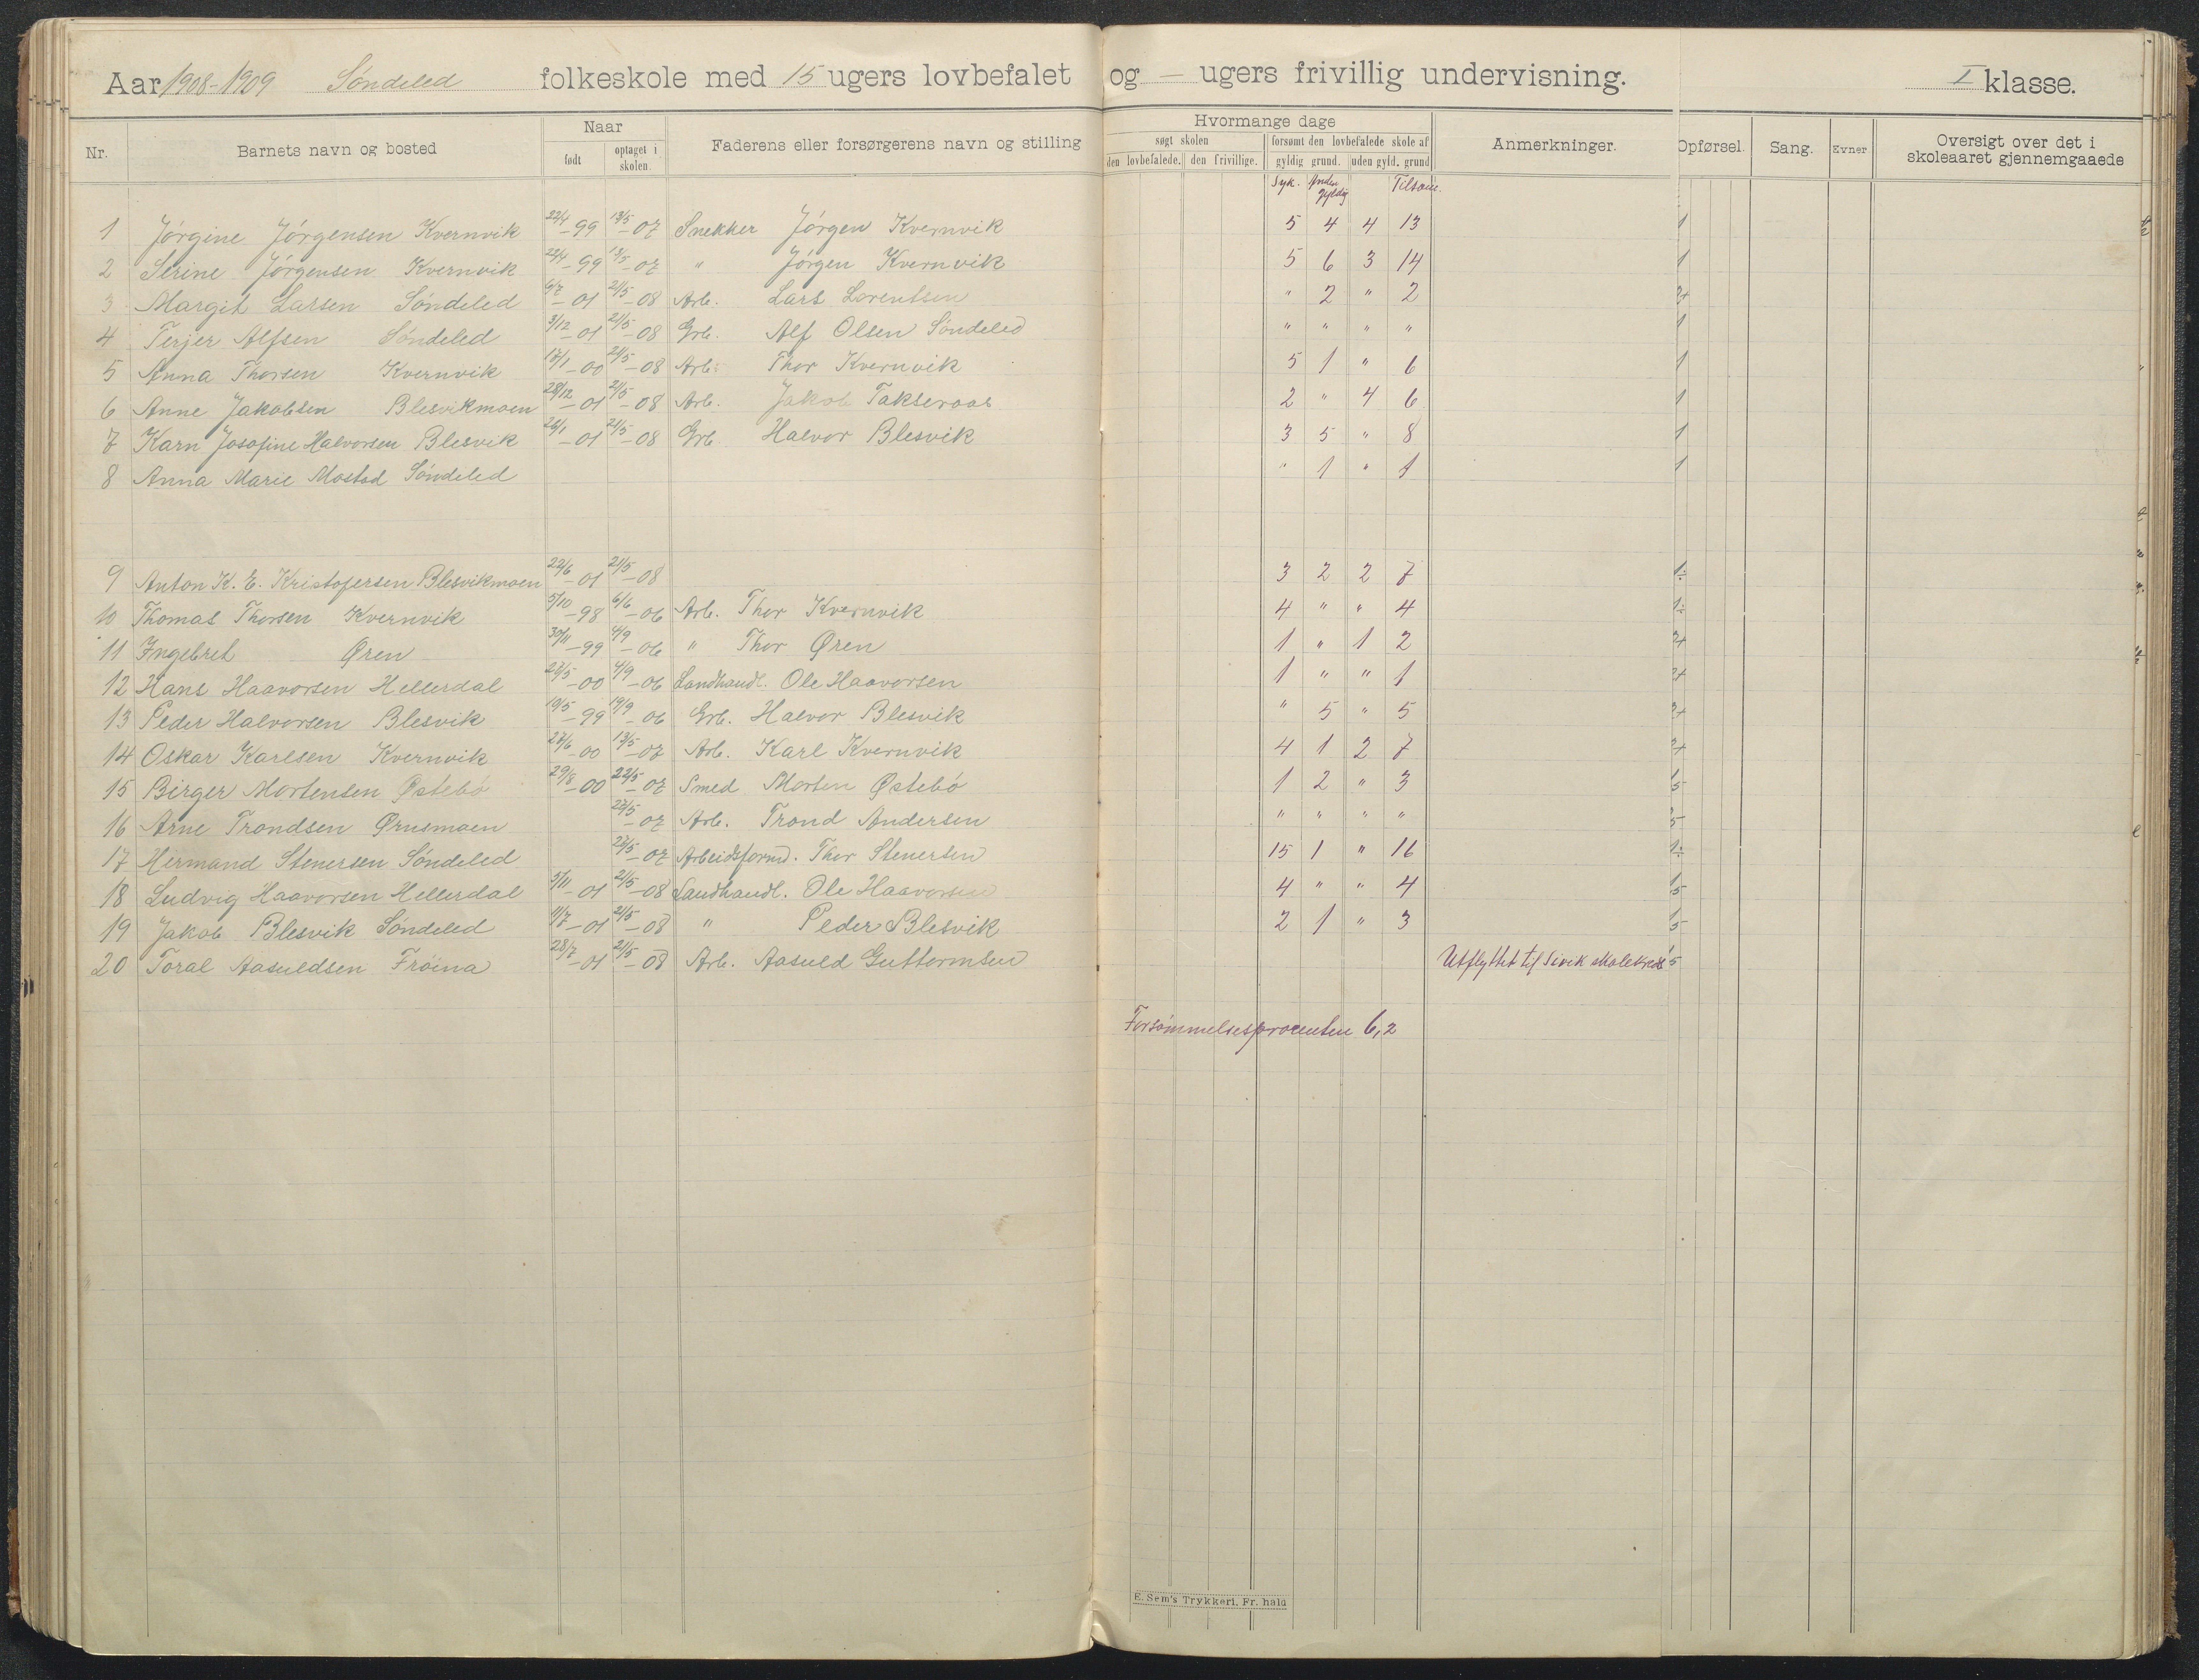 Aar 1908-1909 Søndeled folkeskole med 15 ugers lovbefalet og — ugers frivillig undervisning. I klasse.
Nr. Barnets navn og bosted Naar født optaget i skolen. Faderens eller forsørgerens navn og stilling Hvormange dage søgt skolen den lovbefalede. den frivillige. forsømt den lovbefalede skole af gyldig grund. uden gyld. grund Anmerkninger. Opførsel. Sang. Evner Oversigt over det i skoleaaret gjennemgaaede
Syk. Anden gyldig Tilsam.
1 Jørgine Jørgensen Kvernvik 22/4-99 13/5-07 Snekker Jørgen Kvernvik 5 4 4 13 1
2 Serine Jørgensen Kvernvik 22/4-99 13/5-07 " Jørgen Kvernvik 5 6 3 14 1
3 Margit Larsen Søndeled 6/7-01 21/5-08 Arb. Lars Lorentsen " 2 " 2 2+
4 Terjer Alfsen Søndeled 3/12-01 21/5-08 Grb. Alf Olsen Søndeled " " " " 1
5 Anna Thorsen Kvernvik 17/1-00 21/5-08 Arb. Thor Kvernvik 5 1 " 6 1
6 Anne Jakobsen Blesvikmoen 28/12-01 21/5-08 Arb. Jakob Takseraas 2 " 4 6 1
7 Karn Josefine Halvorsen Blesvik 26/1-01 21/5-08 Grb. Halvor Blesvik 3 5 " 8 1
8 Anna Marie Mostad Søndeled " 1 " 1 1
9 Anton K. E. Kristofersen Blesvikmoen 22/6-01 21/5-08 3 2 2 7 1÷
10 Thomas Thorsen Kvernvik 5/10-98 6/6-06 Arb. Thor Kvernvik 4 " " 4 1÷
11 Ingebret Øren 30/11-99 4/9-06 " Thor Øren 1 " 1 2 2+
12 Hans Haavorsen Hellerdal 27/5-00 4/9-06 Landhandl. Ole Haavorsen 1 " " 1 2+
13 Peder Halvorsen Blesvik 19/5-99 19/9-06 Grb. Halvor Blesvik " 5 " 5 2+
14 Oskar Karlsen Kvernvik 27/6-00 13/5-07 Arb. Karl Kvernvik 4 1 2 7 2+
15 Birger Mortensen Østebø 29/8-00 22/5-07 Smed Morten Østebø 1 2 " 3 1,5
16 Arne Trondsen Ørnsmoen 27/5-07 Arb. Trond Andersen " " " "
17 Hermand Stenersen Søndeled 27/5-07 Arbeidsform. Thor Stenersen 15 1 " 16 1÷
18 Ludvig Haavorsen Hellerdal 5/11-01 21/5-08 Landhandl. Ole Haavorsen 4 " " 4 1,5
19 Jakob Blesvik Søndeled 11/7-01 21/5-08 " Peder Blesvik 2 1 " 3 1,5
20 Toral Aasuldsen Frøina 28/7-01 21/5-08 Arb. Aasuld Guttormsen Utflyttet til Sivik skolekreds
Forsømmelsesprocenten 6,2
E. Sem's Trykkeri, Fr. hald